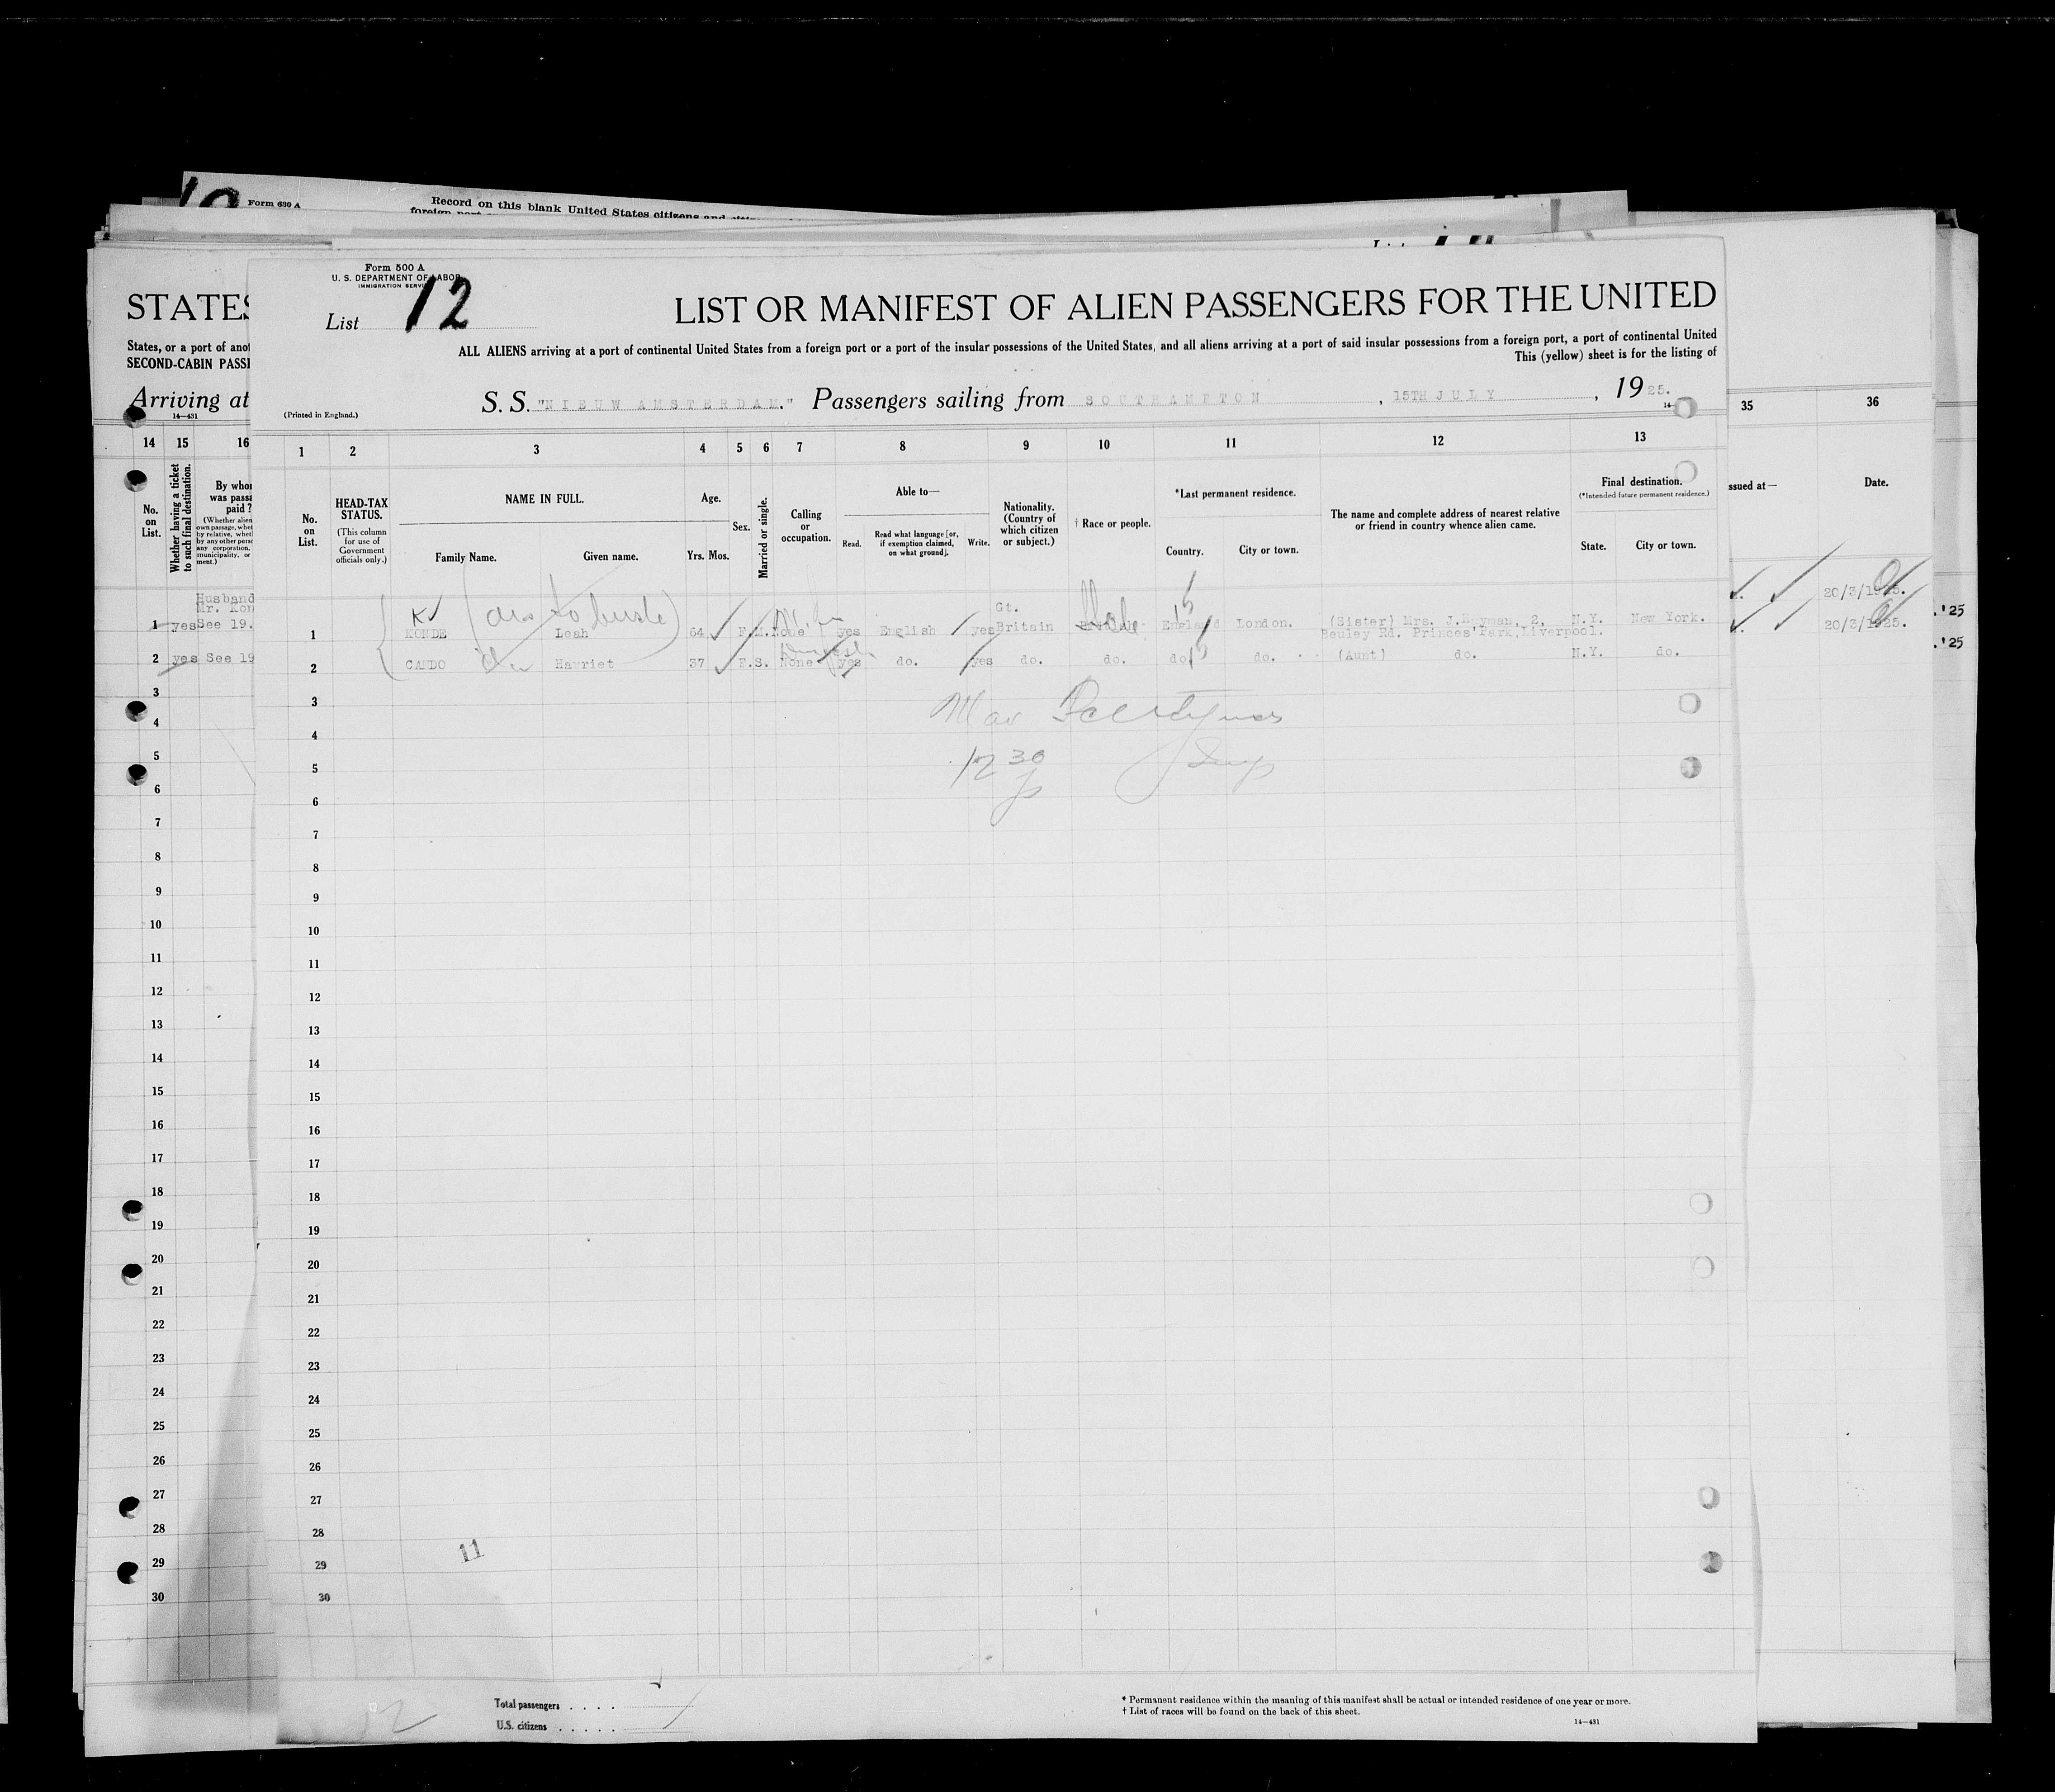 Form 630 A
Record on this blank United States citizens and
foreign port
STATES
States, or a port of anot
SECOND-CABIN PASSE
Arriving at
14—431
14 15 16
No. on List.
Whether having a ticket to such final destination.
By whom
was passa
paid?
(Whether alien
own passage, whet
by relative, wheth
by any other perso
any corporation,
municipality, or
ment.)
Husband
Mr. Kon
1 yes See 19.
2 yes See 19
3
4
5
6
7
8
9
10
11
12
13
14
15
16
17
18
19
20
21
22
23
24
25
26
27
28
29
30
Form 500 A
U. S. DEPARTMENT OF LABOR
IMMIGRATION SERVI
List 12
LIST OR MANIFEST OF ALIEN PASSENGERS FOR THE UNITED
ALL ALIENS arriving at a port of continental United States from a foreign port or a port of the insular possessions of the United States, and all aliens arriving at a port of said insular possessions from a foreign port, a port of continental United
This (yellow) sheet is for the listing of
(Printed in England.)
S. S. "NIEUW AMSTERDAM." Passengers sailing from SOUTHAMPTON, 15TH JULY, 1925.
14
1 2 3 4 5 6 7 8 9 10 11 12 13
No. on List.
HEAD-TAX STATUS.
(This column for use of Government officials only.)
NAME IN FULL.
Family Name. Given name.
Age.
Yrs. Mos.
Sex.
Married or single.
Calling or occupation.
Able to—
Read. Read what language [or, if exemption claimed, on what ground]. Write.
Nationality. (Country of which citizen or subject.)
† Race or people.
*Last permanent residence.
Country. City or town.
The name and complete address of nearest relative or friend in country whence alien came.
Final destination.
(*Intended future permanent residence.)
State. City or town.
Gt.
1 KONDE Leah 64 F. M. None yes English yes Britain England London. (Sister) Mrs. J. Hyman, 2, N.Y. New York.
Beuley Rd. Princes Park, Liverpool.
2 CANDO Harriet 37 F. S. None yes do. yes do. do. do. do. (Aunt) do. N.Y. do.
3
4
12 30
5
6
7
8
9
10
11
12
13
14
15
16
17
18
19
20
21
22
23
24
25
26
27
28
29
30
11
12
Total passengers
U.S. citizens
* Permanent residence within the meaning of this manifest shall be actual or intended residence of one year or more.
† List of races will be found on the back of this sheet.
14—431
35 36
ssued at— Date.
20/3/1925.
20/3/1925.
.'25
.'25